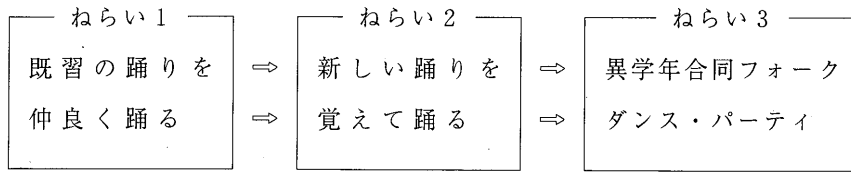 ねらい1
既習の踊りを
仲良く踊る
⇨
⇨
ねらい2
新しい踊りを
覚えて踊る
⇨
⇨
ねらい3
異学年合同フォーク
ダンス・パーティ